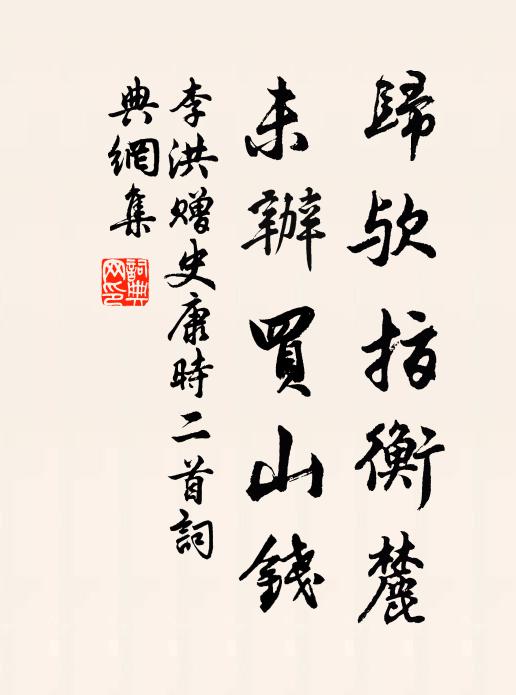 歸欤指衡麓
未辦買山錢
李洪贈史康時二首詞
典網集
詞典网印